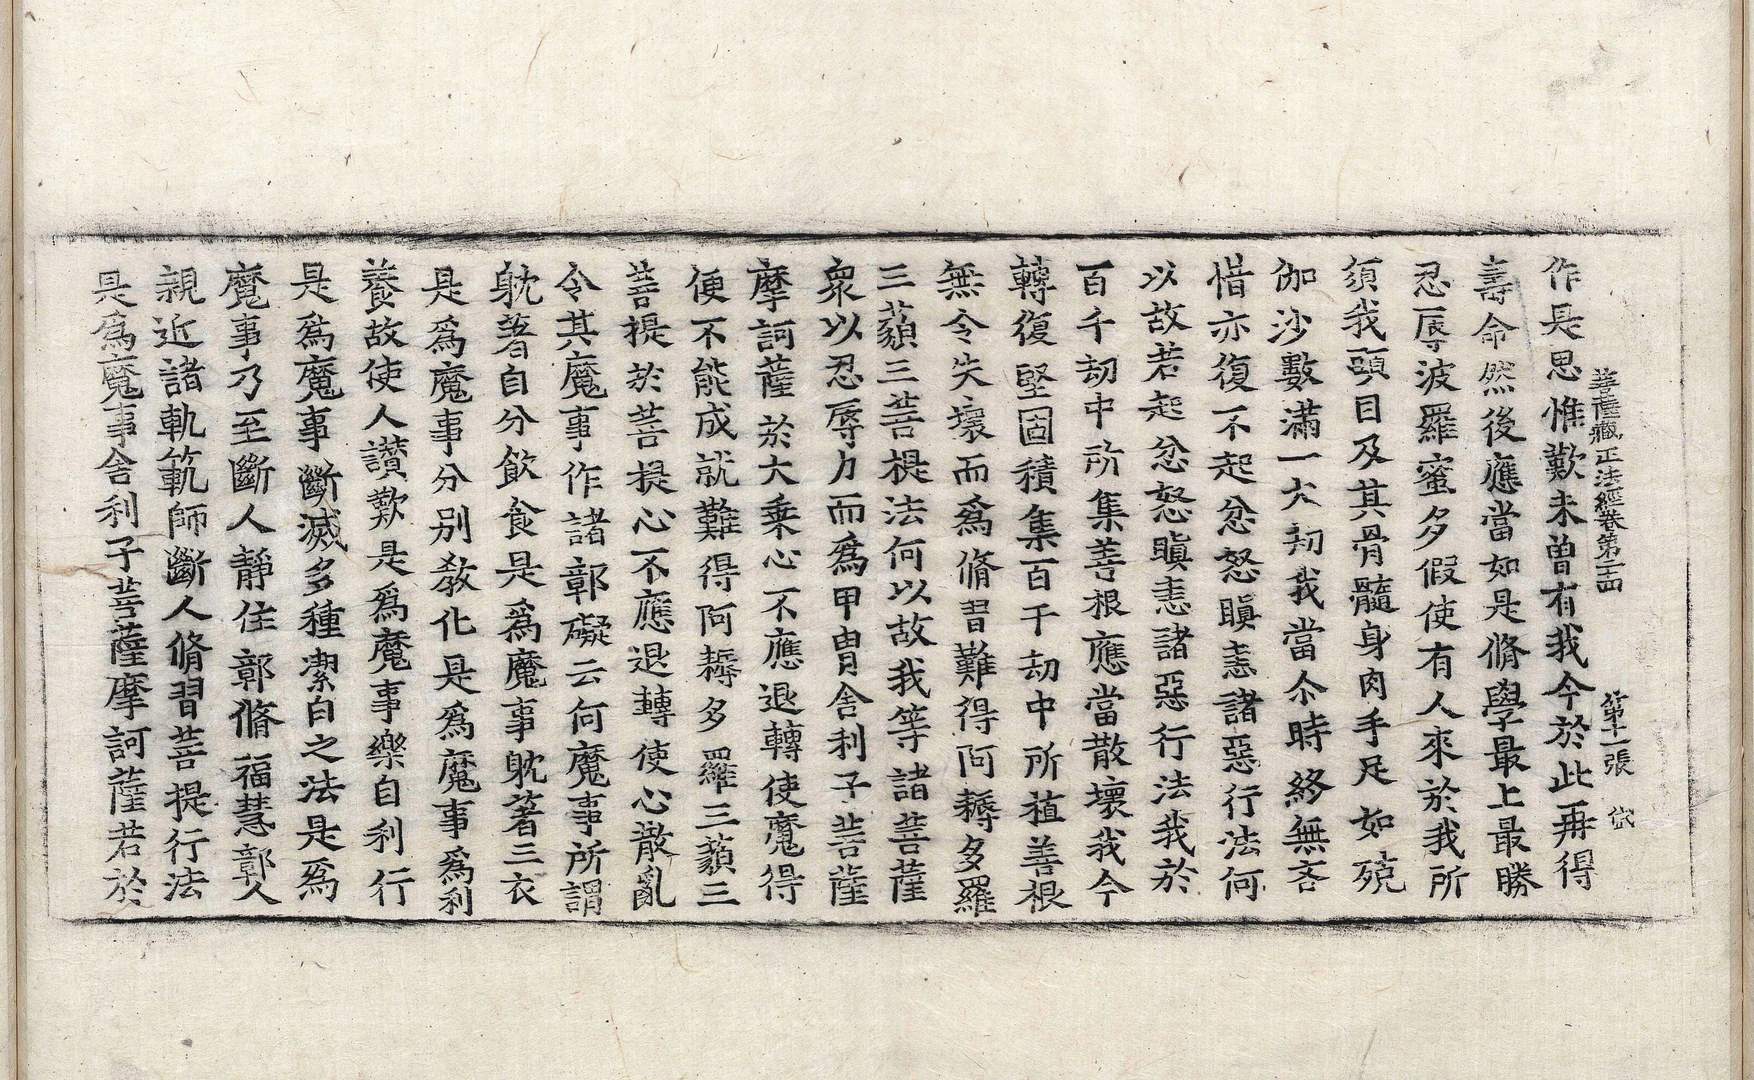 菩薩藏正法經卷第二十四 第十一張 岱
作是思惟歎未曾有我今於此再得
壽命然後應當如是脩學最上最勝
忍辱波羅蜜多假使有人來於我所
須我頭目及其骨髓身肉手足如殑
伽沙數滿一大劫我當尒時終無吝
惜亦復不起忿怒瞋恚諸惡行法何
以故若起忿怒瞋恚諸惡行法我於
百千劫中所集善根應當散壞我今
轉復堅固積集百千劫中所植善根
無令失壞而爲脩習難得阿耨多羅
三藐三菩提法何以故我等諸菩薩
衆以忍辱力而爲甲冑舍利子菩薩
摩訶薩於大乗心不應退轉使魔得
便不能成就難得阿耨多羅三藐三
菩提於菩提心不應退轉使心散亂
令其魔事作諸鄣礙云何魔事所謂
躭著自分飲食是爲魔事躭著三衣
是爲魔事分别教化是爲魔事爲利
養故使人讃歎是爲魔事樂自利行
是爲魔事斷滅多種潔白之法是爲
魔事乃至斷人靜住鄣脩福慧鄣人
親近諸軌範師斷人脩習菩提行法
是爲魔事舍利子菩薩摩訶薩若於